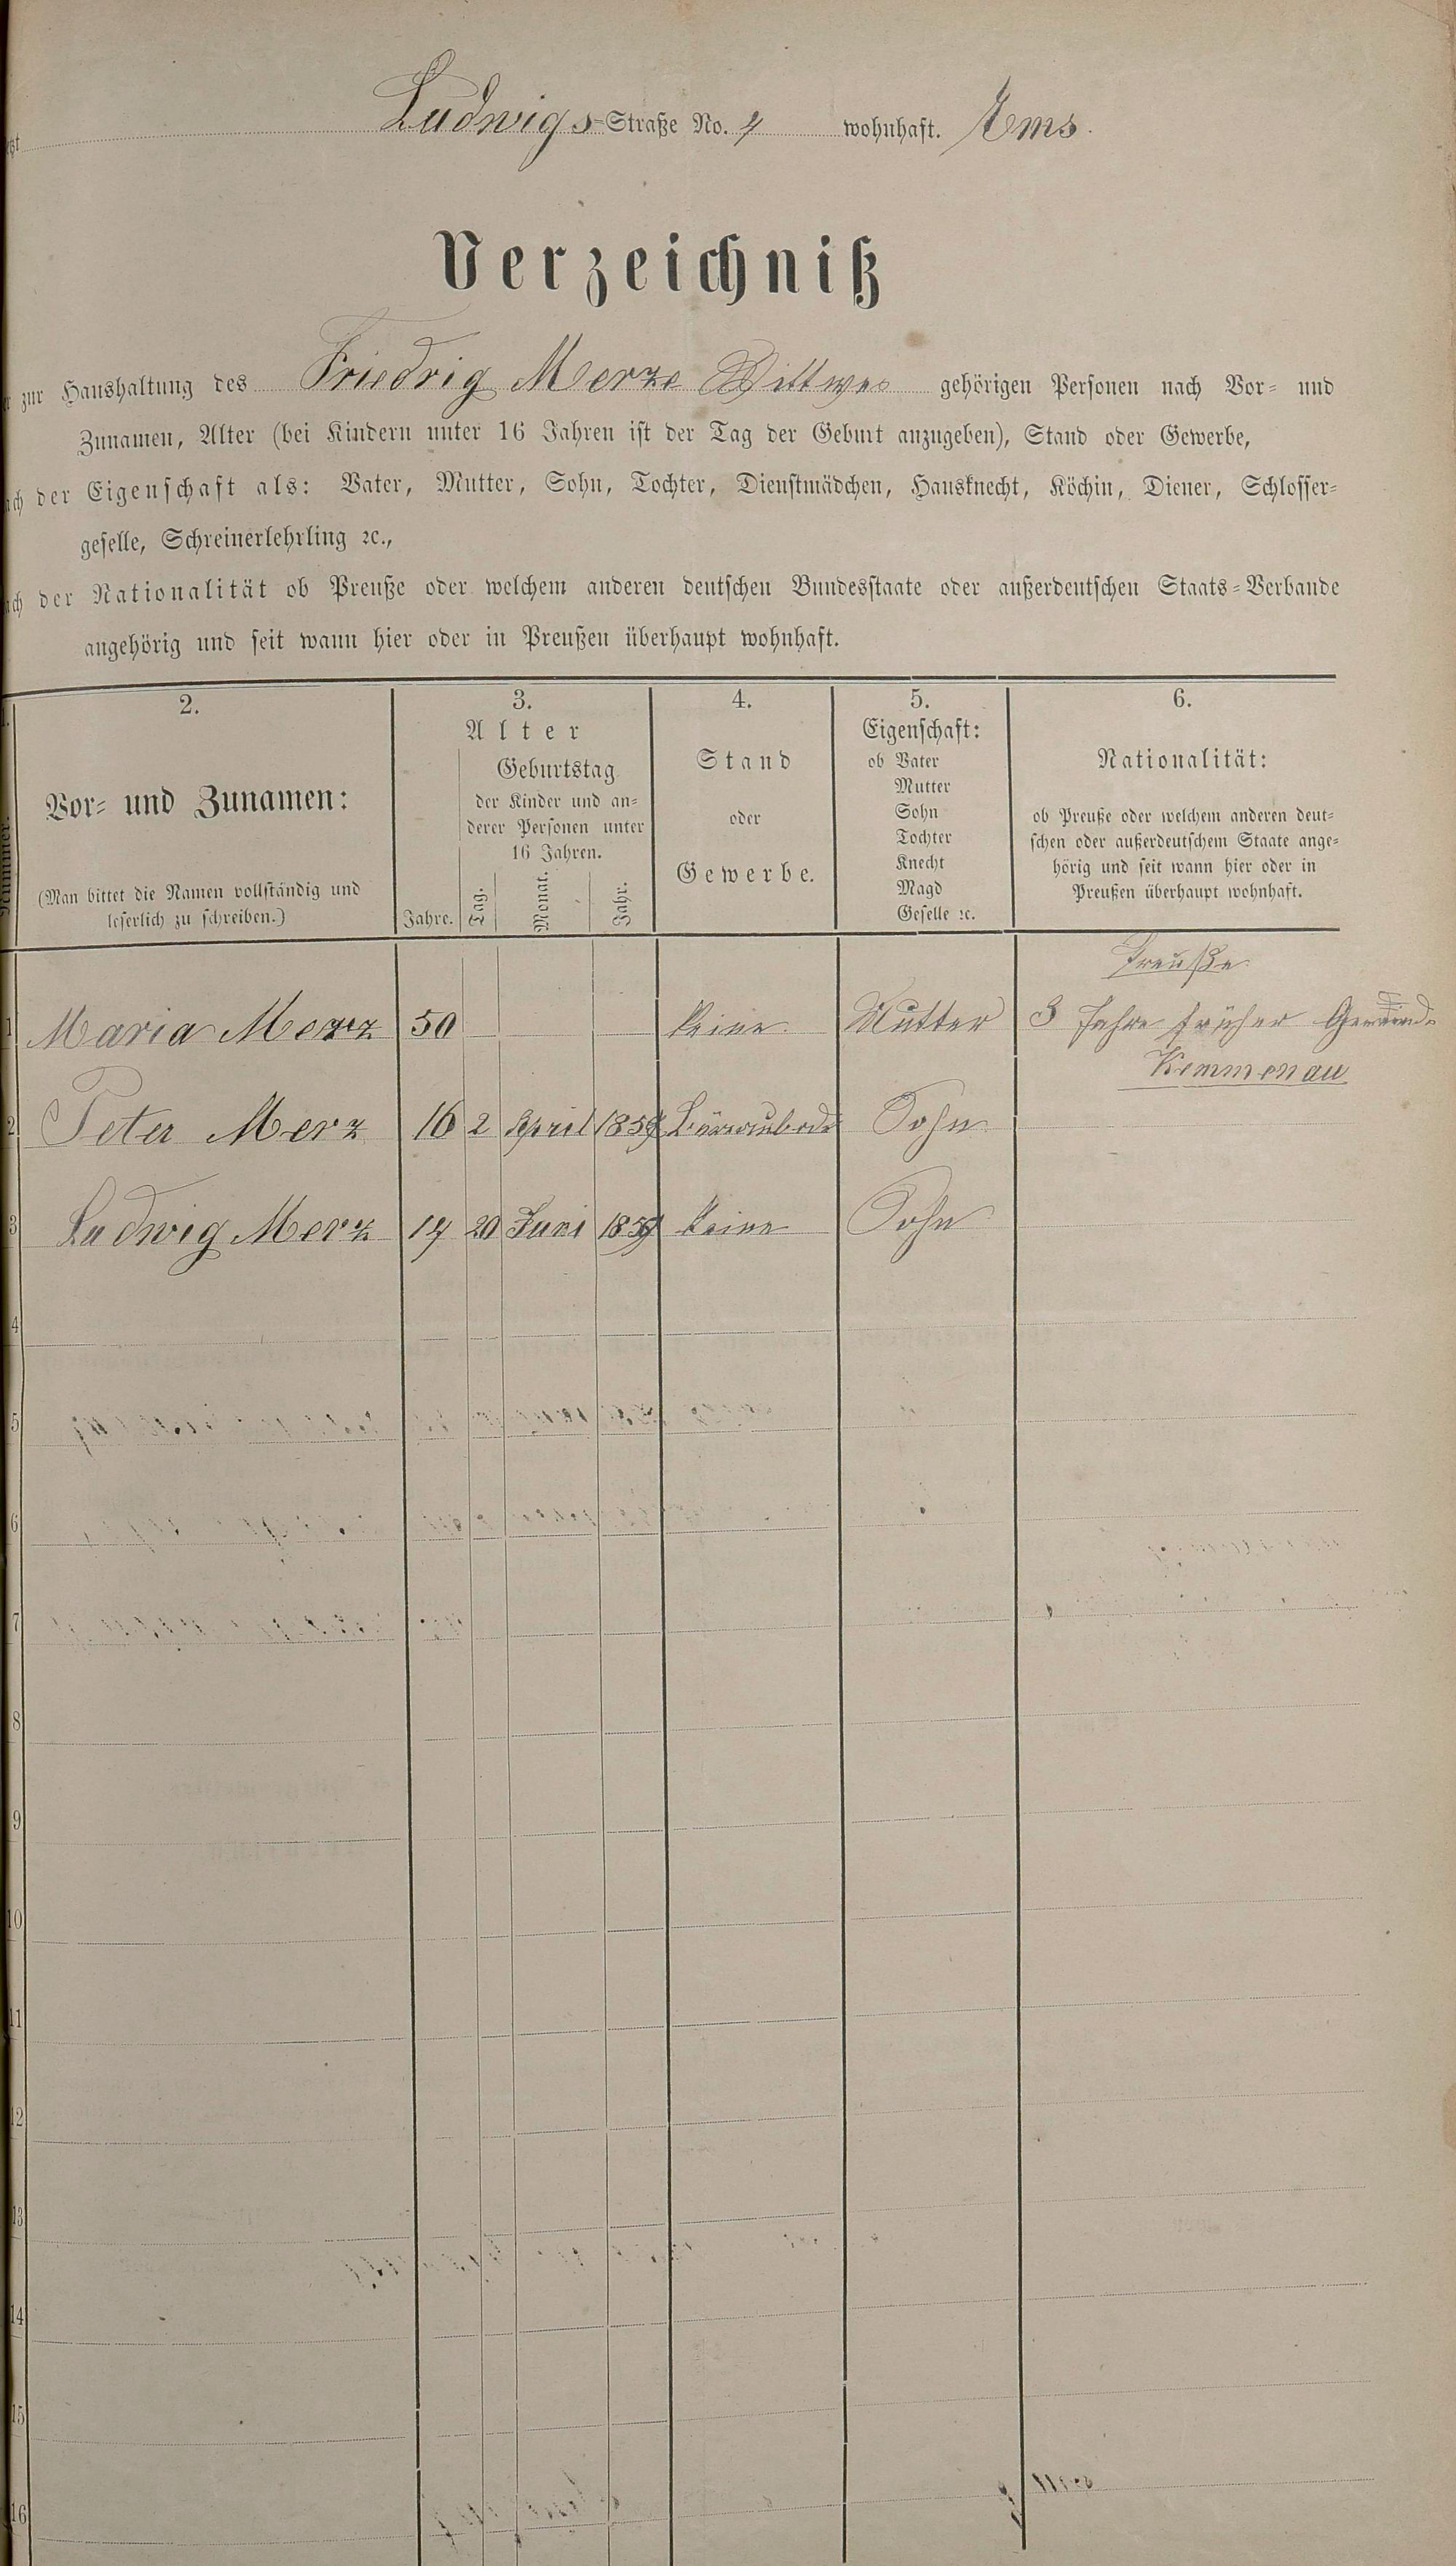 Ludwigs-Straße No. 4 wohnhaft. Ems.
Verzeichniß
zur Haushaltung des Friedrig Merze Wittwes gehörigen Personen nach Vor- und
Zunamen, Alter (bei Kindern unter 16 Jahren ist der Tag der Geburt anzugeben), Stand oder Gewerbe,
der Eigenschaft als: Vater, Mutter, Sohn, Tochter, Dienstmädchen, Hausknecht, Köchin, Diener, Schlosser-
geselle, Schreinerlehrling ꝛc.,
der Nationalität ob Preuße oder welchem anderen deutschen Bundesstaate oder außerdeutschen Staats-Verbande
angehörig und seit wann hier oder in Preußen überhaupt wohnhaft.
Nummer.
2.
Vor- und Zunamen:
(Man bittet die Namen vollständig und
leserlich zu schreiben.)
3.
Alter
Geburtstag
der Kinder und an-
derer Personen unter
16 Jahren.
Jahre. Tag. Monat. Jahr.
4.
Stand
oder
Gewerbe.
5.
Eigenschaft:
ob Vater
Mutter
Sohn
Tochter
Knecht
Magd
Geselle ꝛc.
6.
Nationalität:
ob Preuße oder welchem anderen deut-
schen oder außerdeutschem Staate ange-
hörig und seit wann hier oder in
Preußen überhaupt wohnhaft.
Preuße
1 Maria Merz 50 keine. Mutter 3 Jahre früher
Kemmenau
2 Peter Merz 16 2 April Sohn
3 Ludwig Merz 14 20 Juni keine Sohn
4
5
6
7
8
9
10
11
12
13
14
15
16